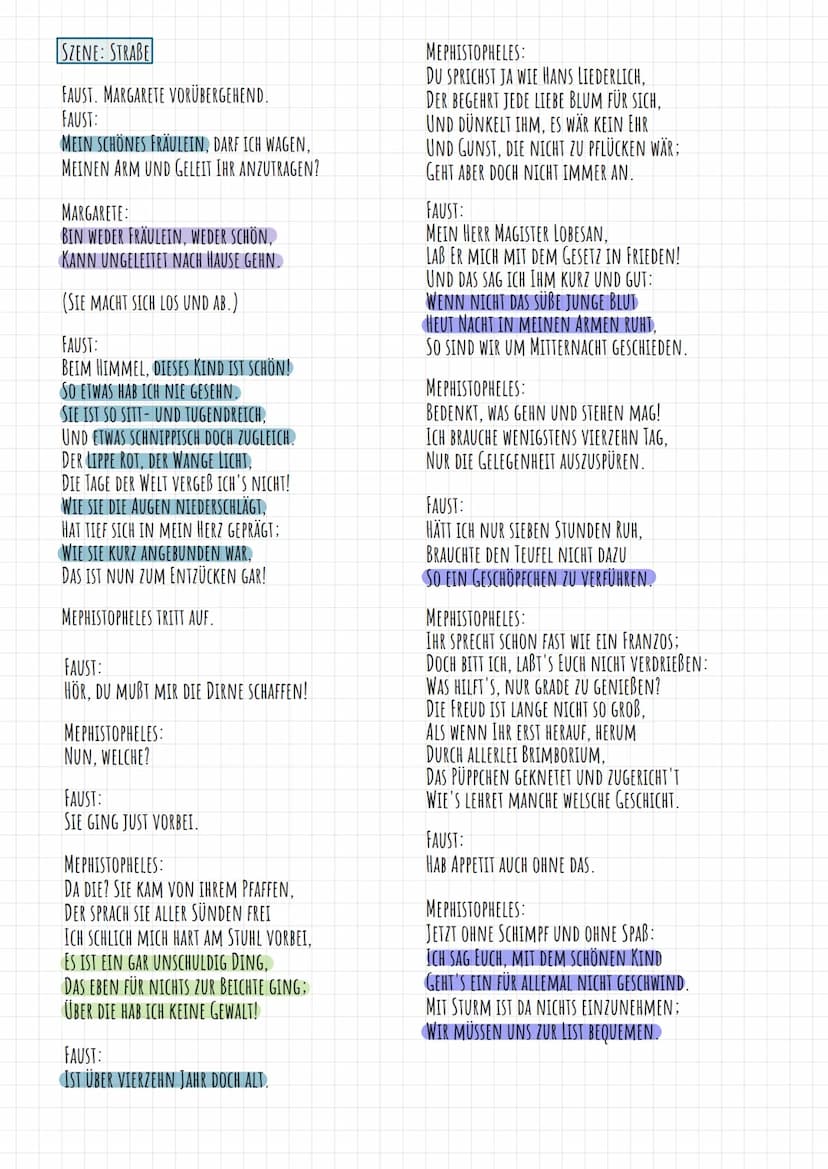 Szene: Straße
Faust. Margarete vorübergehend.
Faust:
Mein schönes Fräulein, darf ich wagen,
Meinen Arm und Geleit Ihr anzutragen?
Margarete:
Bin weder Fräulein, weder schön,
Kann ungeleitet nach Hause gehn.
(Sie macht sich los und ab.)
Faust:
Beim Himmel, dieses Kind ist schön!
So etwas hab ich nie gesehn.
Sie ist so sitt- und tugendreich,
Und etwas schnippisch doch zugleich.
Der Lippe Rot, der Wange Licht,
Die Tage der Welt vergeß ich's nicht!
Wie sie die Augen niederschlägt,
Hat tief sich in mein Herz geprägt;
Wie sie kurz angebunden war,
Das ist nun zum Entzücken gar!
Mephistopheles tritt auf.
Faust:
Hör, du mußt mir die Dirne schaffen!
Mephistopheles:
Nun, welche?
Faust:
Sie ging just vorbei.
Mephistopheles:
Da die? Sie kam von ihrem Pfaffen,
Der sprach sie aller Sünden frei
Ich schlich mich hart am Stuhl vorbei,
Es ist ein gar unschuldig Ding,
Das eben für nichts zur Beichte ging;
Über die hab ich keine Gewalt!
Faust:
Ist über vierzehn Jahr doch alt.
Mephistopheles:
Du sprichst ja wie Hans Liederlich,
Der begehrt jede liebe Blum für sich,
Und dünkelt ihm, es wär kein Ehr
Und Gunst, die nicht zu pflücken wär;
Geht aber doch nicht immer an.
Faust:
Mein Herr Magister Lobesan,
Laß Er mich mit dem Gesetz in Frieden!
Und das sag ich Ihm kurz und gut:
Wenn nicht das süße junge Blut
Heut Nacht in meinen Armen ruht,
So sind wir um Mitternacht geschieden.
Mephistopheles:
Bedenkt, was gehn und stehen mag!
Ich brauche wenigstens vierzehn Tag,
Nur die Gelegenheit auszuspüren.
Faust:
Hätt ich nur sieben Stunden Ruh,
Brauchte den Teufel nicht dazu
So ein Geschöpfchen zu verführen.
Mephistopheles:
Ihr sprecht schon fast wie ein Franzos;
Doch bitt ich, laßt's Euch nicht verdrießen:
Was hilft's, nur grade zu genießen?
Die Freud ist lange nicht so groß,
Als wenn Ihr erst herauf, herum
Durch allerlei Brimborium,
Das Püppchen geknetet und zugericht't
Wie's lehret manche welsche Geschicht.
Faust:
Hab Appetit auch ohne das.
Mephistopheles:
Jetzt ohne Schimpf und ohne Spaß:
Ich sag Euch, mit dem schönen Kind
Geht's ein für allemal nicht geschwind.
Mit Sturm ist da nichts einzunehmen;
Wir müssen uns zur List bequemen.